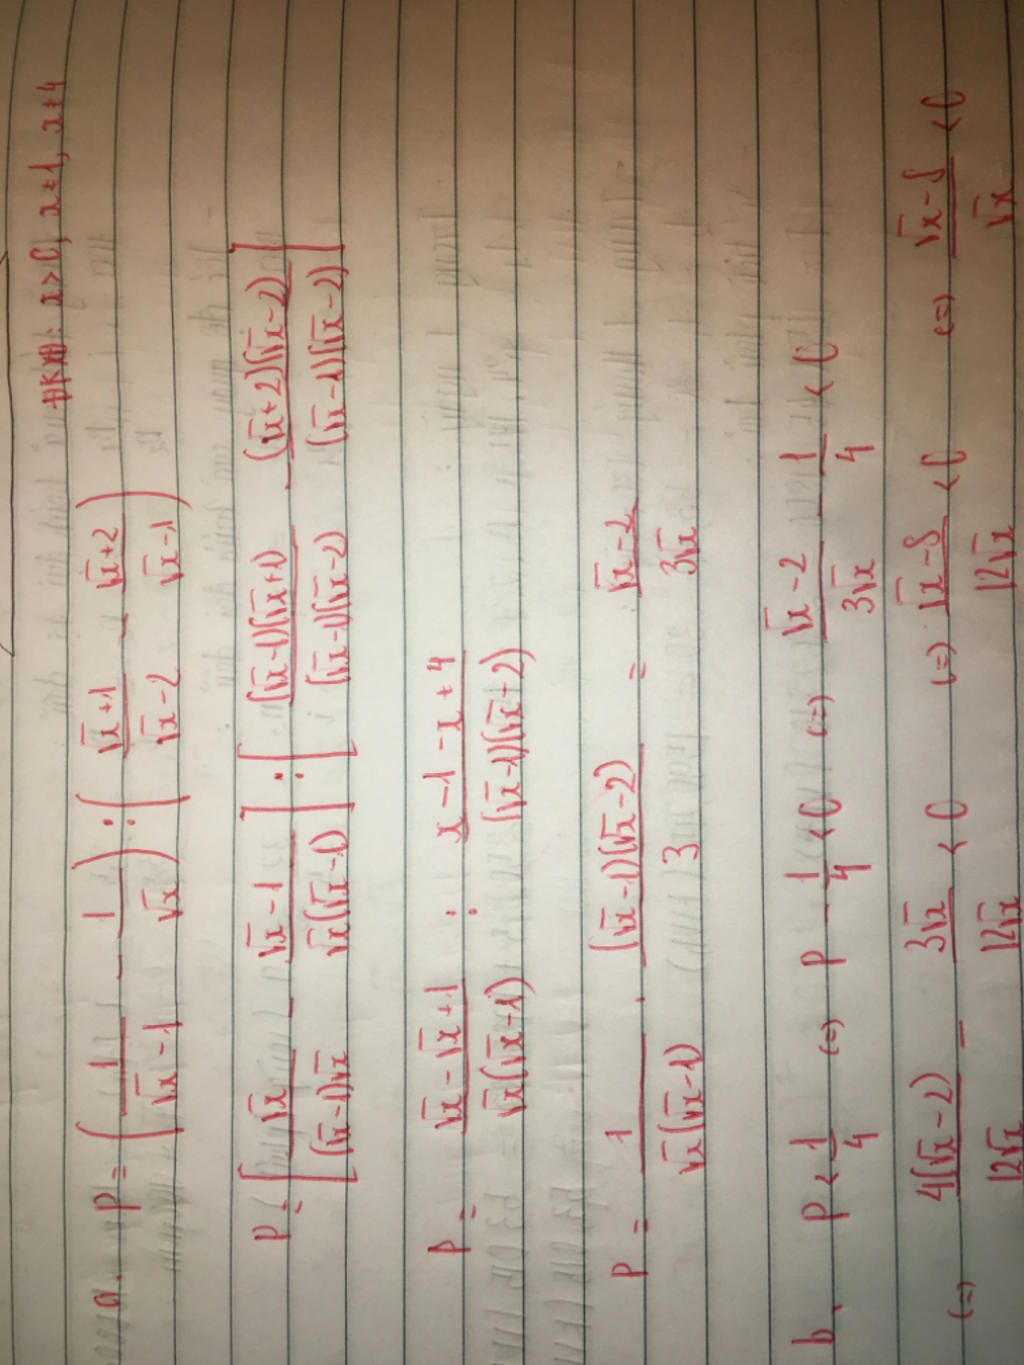 ĐKXĐ: x > 0, x ≠ 1, x ≠ 4
a. P = (1/(√x - 1) - 1/√x) : ((√x + 1)/(√x - 2) - (√x + 2)/(√x - 1))
P = [√x/((√x - 1)√x) - (√x - 1)/(√x(√x - 1))] : [(√x - 1)(√x + 1)/((√x - 1)(√x - 2)) - (√x + 2)(√x - 2)/((√x - 1)(√x - 2))]
P = (√x - √x + 1)/(√x(√x - 1)) : (x - 1 - x + 4)/((√x - 1)(√x - 2))
P = 1/(√x(√x - 1)) . (√x - 1)(√x - 2)/3 = (√x - 2)/(3√x)
b. P < 1/4 (=) P - 1/4 < 0 (=) (√x - 2)/(3√x) - 1/4 < 0
(=) 4(√x - 2)/(12√x) - 3√x/(12√x) < 0 (=) (√x - 8)/(12√x) < 0 (=) (√x - 8)/√x < 0